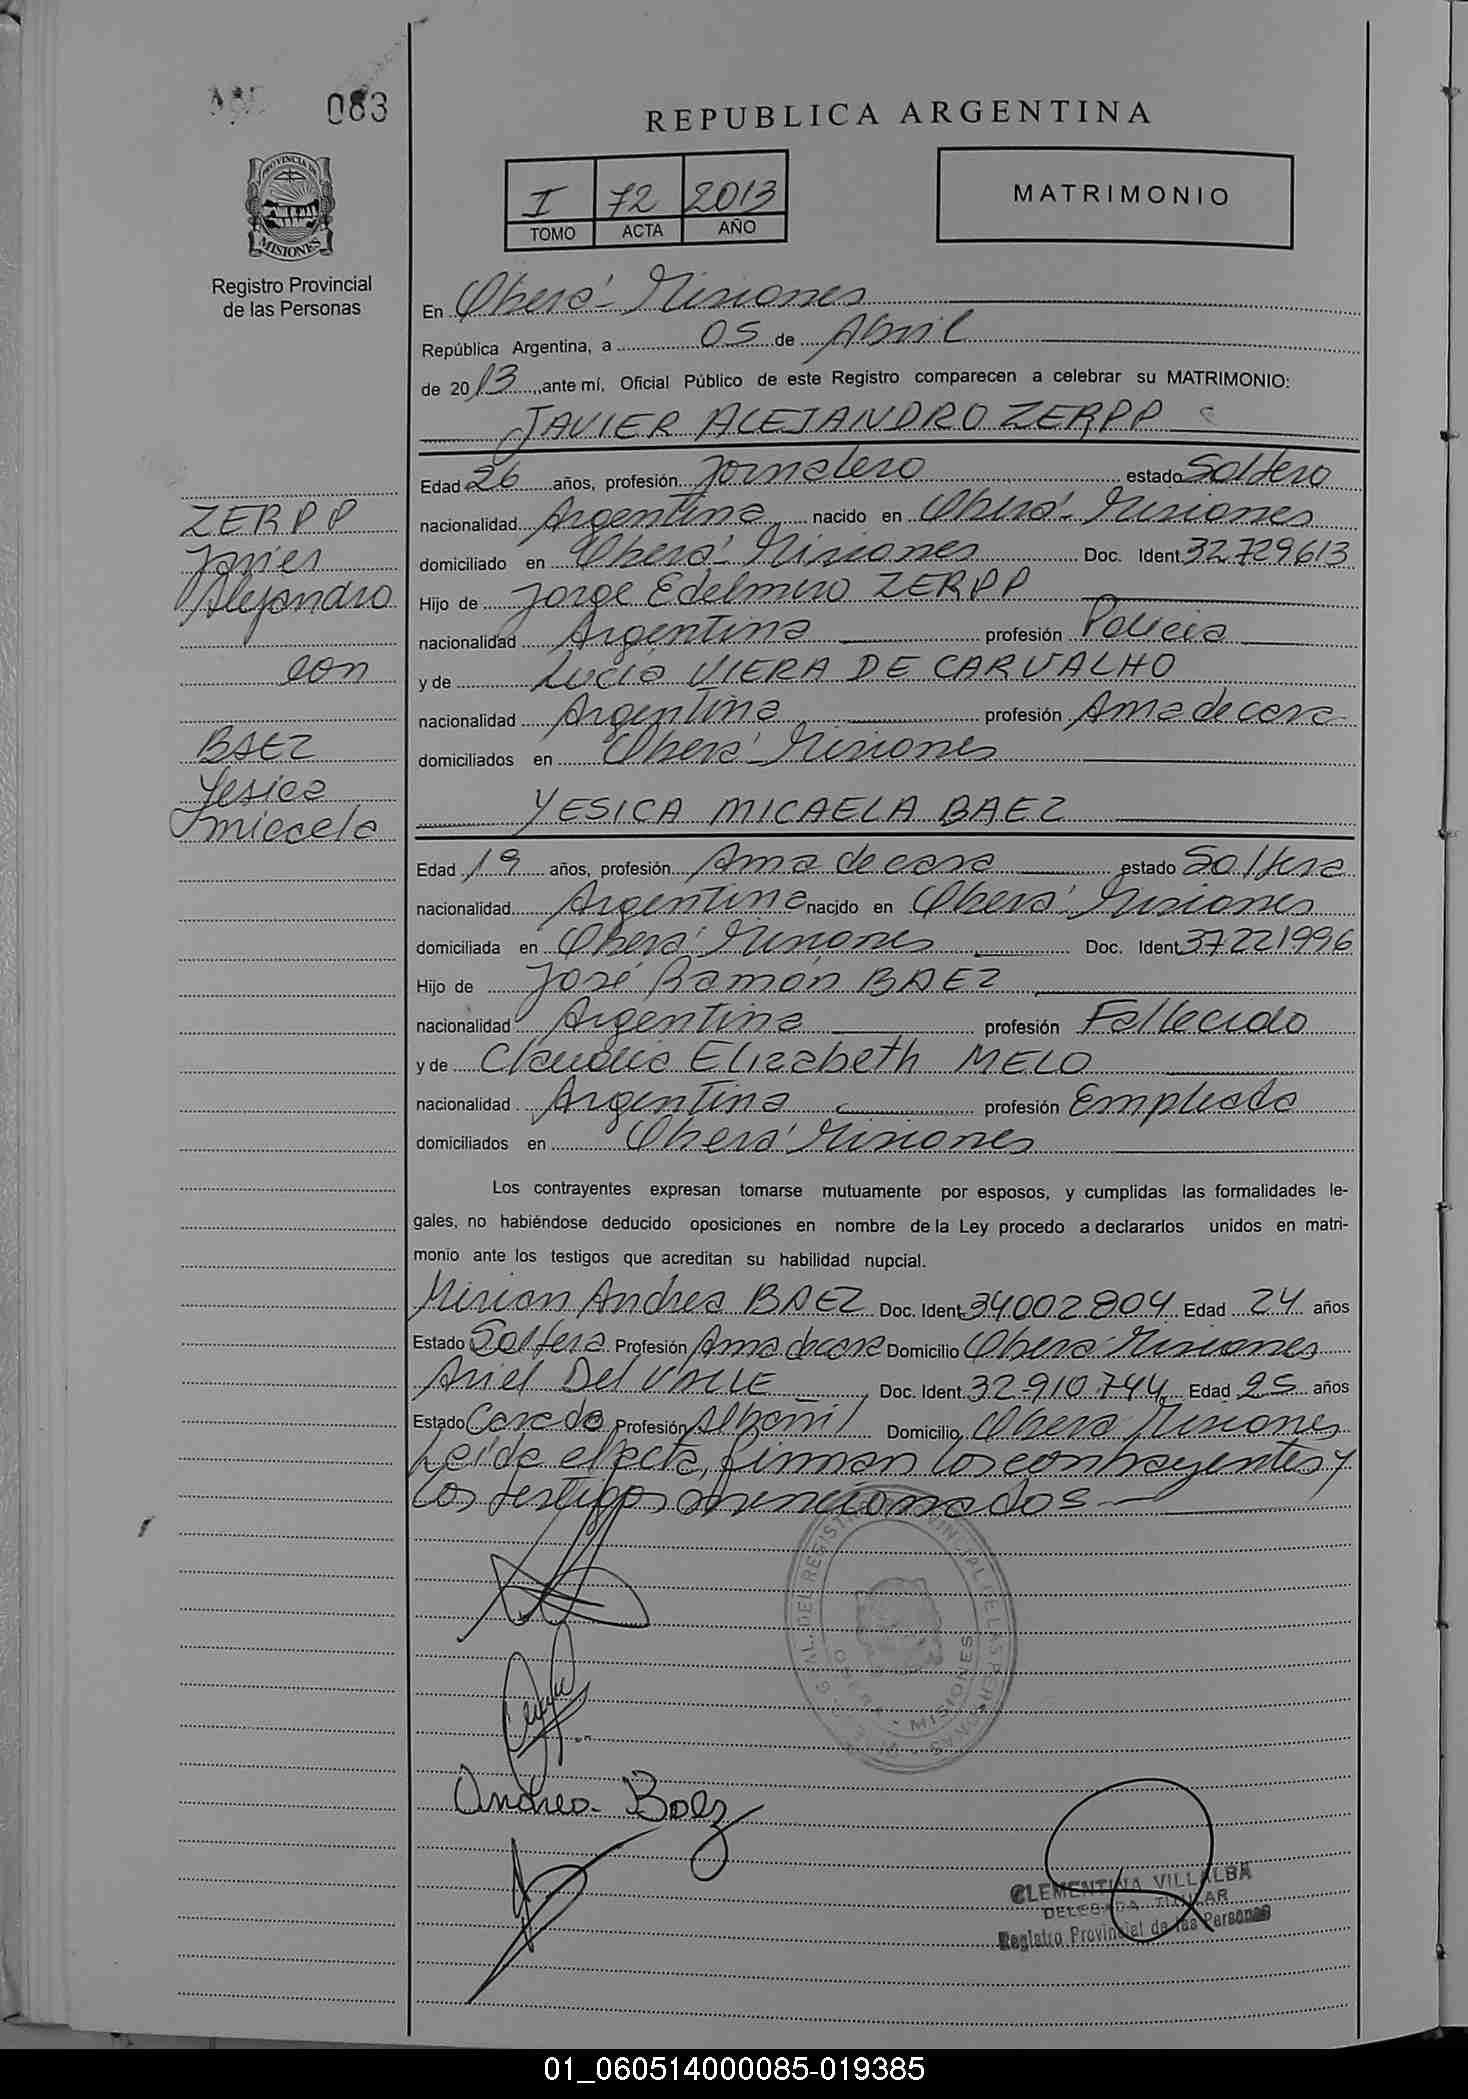 083
REPUBLICA ARGENTINA
PROVINCIA DE
MISIONES
Registro Provincial
de las Personas
I 72 2013
TOMO ACTA AÑO
MATRIMONIO
En Oberá - Misiones
República Argentina, a 05 de Abril
de 2013, ante mí, Oficial Público de este Registro comparecen a celebrar su MATRIMONIO:
JAVIER ALEJANDRO ZERPP
Edad 26 años, profesión Jornalero estado Soltero
nacionalidad Argentina nacido en Oberá - Misiones
domiciliado en Oberá - Misiones Doc. Ident. 32729613
Hijo de Jorge Edelmiro ZERPP
nacionalidad Argentina profesión Policia
y de Lucia VIERA DE CARVALHO
nacionalidad Argentina profesión Ama de casa
domiciliados en Oberá - Misiones
YESICA MICAELA BAEZ
Edad 19 años, profesión Ama de casa estado Soltera
nacionalidad Argentina nacido en Oberá - Misiones
domiciliada en Oberá - Misiones Doc. Ident. 37221996
Hijo de José Ramón BAEZ
nacionalidad Argentina profesión Fallecido
y de Claudia Elizabeth MELO
nacionalidad Argentina profesión Empleada
domiciliados en Oberá - Misiones
ZERPP
Javier
Alejandro
con
BAEZ
Yesica
Micaela
Los contrayentes expresan tomarse mutuamente por esposos, y cumplidas las formalidades le-
gales, no habiéndose deducido oposiciones en nombre de la Ley procedo a declararlos unidos en matri-
monio ante los testigos que acreditan su habilidad nupcial.
Mirian Andrea BAEZ Doc. Ident. 34002804 Edad 24 años
Estado Soltera Profesión Ama de casa Domicilio Oberá - Misiones
Ariel Del VALLE Doc. Ident. 32.910.744 Edad 25 años
Estado Casado Profesión Albañil Domicilio Oberá - Misiones
Leída el acta, firman los contrayentes y
los testigos mencionados.
MISIONES
Andrea Baez
CLEMENTINA VILLALBA
DELEGADA TITULAR
Registro Provincial de las Personas
01_060514000085-019385